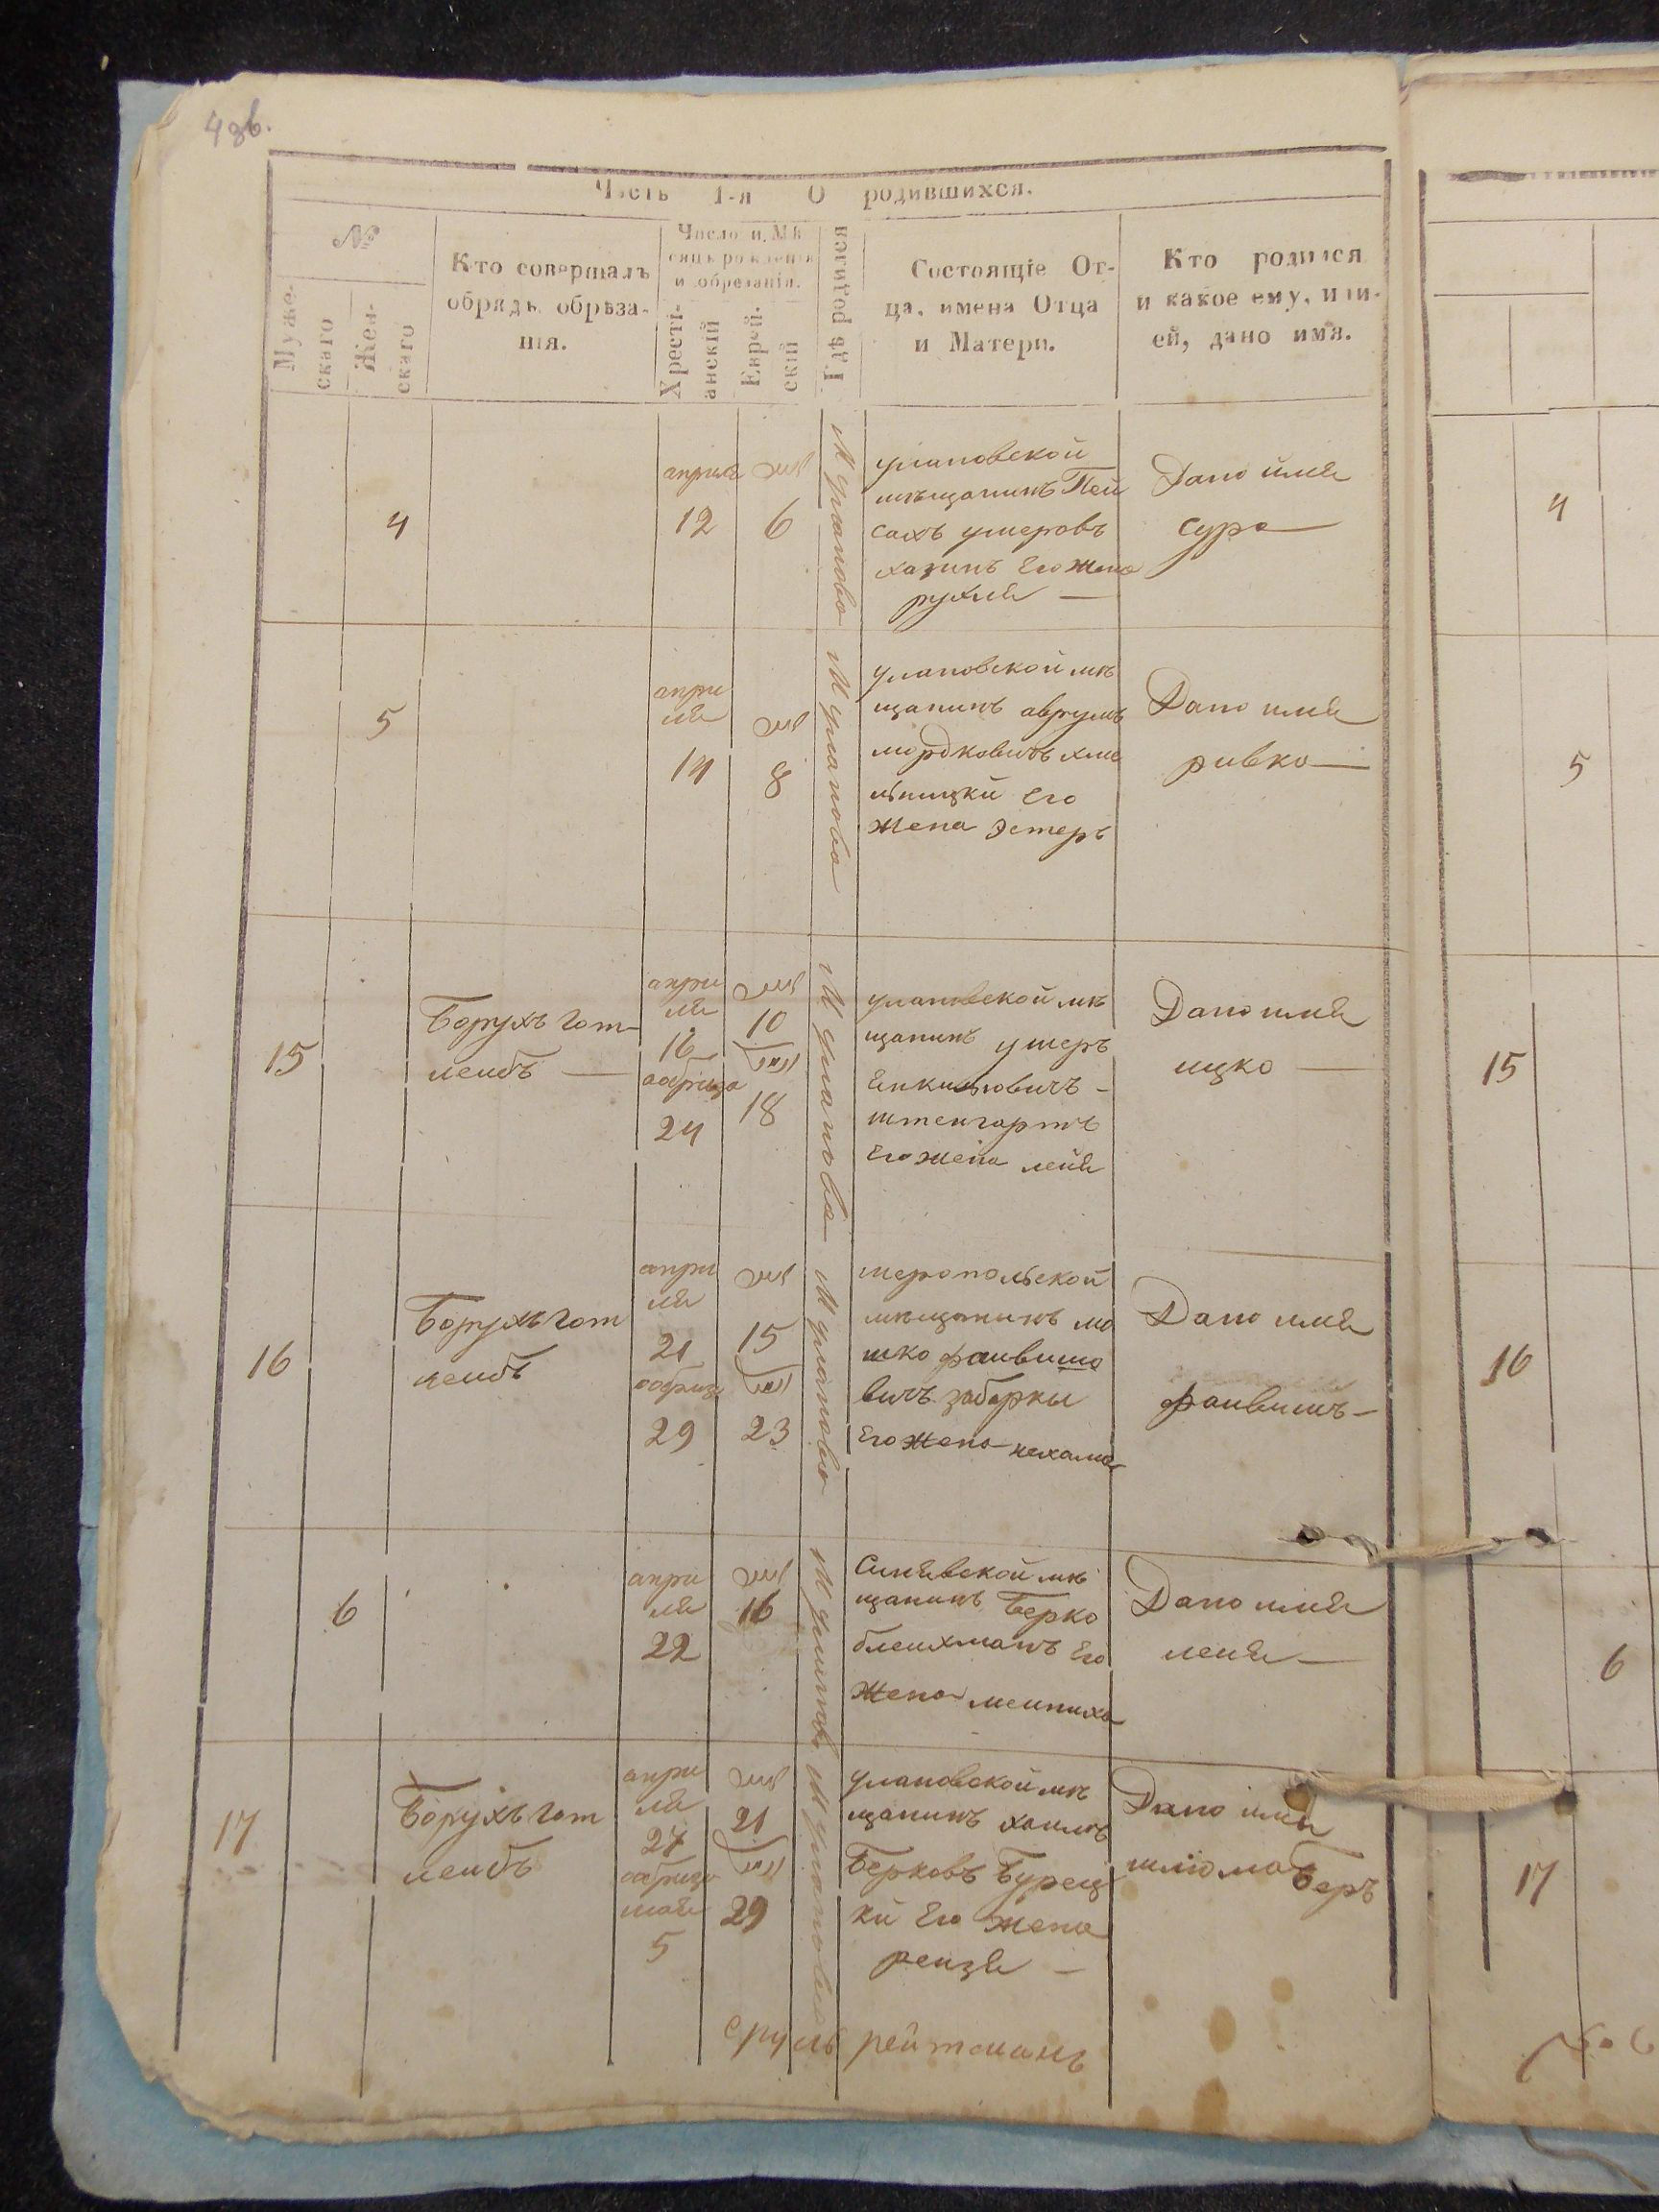 43об.
Часть 1-я О родившихся.
№
Мужескаго
Женскаго
Кто совершалъ
обрядъ обрѣза-
нія.
Число и Мѣ
сяцъ рожденія
и обрезанія.
Христі-
анскій
Еврей-
скій
Гдѣ родился
Состоящіе От-
ца, имена Отца
и Матери.
Кто родился
и какое ему, или
ей, дано имя.
4
апреля
12
6
М улановъ
улановской
мѣщанинъ Пей
сахъ ушеровъ
хазинъ Его жена
рухля —
Дано имя
сура
4
5
апри
ля
14
8
М уланова
улановской мѣ
щанинъ аврумъ
мордковичъ хме
льницки Его
жена Эстеръ
Дано имя
ривка
5
15
Борухъ гот
леибъ —
апри
ля
16
обриза
24
10
18
М уланова
улановской мѣ
щанинъ ушеръ
Янкилювичъ -
штенгартъ
Его жена лейя
Дано имя
ицко —
15
16
Борухъ гот
леибъ
апри
ля
21
обриза
29
15
23
М уланова
меропольской
мѣщанинъ мо
шко фаивишо
вичъ забарки
Его жена нехама
Дано имя
фаивишъ —
16
6
апри
ля
22
16
М уланова
Синявской мѣ
щанинъ Берко
блеихманъ Его
жена менниха
Дано имя
лейя —
6
17
Борухъ гот
леибъ
апри
ля
27
обриза
мая
5
21
29
М уланова
улановской мѣ
щанинъ хаимъ
Берковъ Бурец
ки Его жена
реизя —
Дано имя
шлиома Беръ
17
сруль рейтманъ